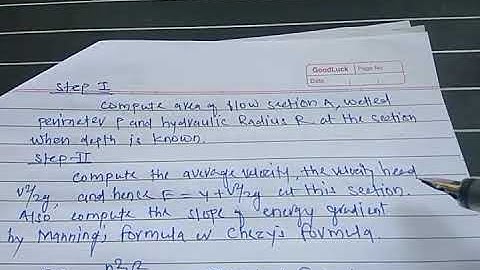 GoodLuck Page No.
Date
Step I
Compute area of flow section A, wetted
perimeter P and hydraulic Radius R at the section
when depth is known.
Step-II
compute the average velocity, the velocity head
V²/2g, and hence E = y + V²/2g at this section.
Also compute the slope of energy gradient
by Manning's formula or Chezy's formula.
n²V²